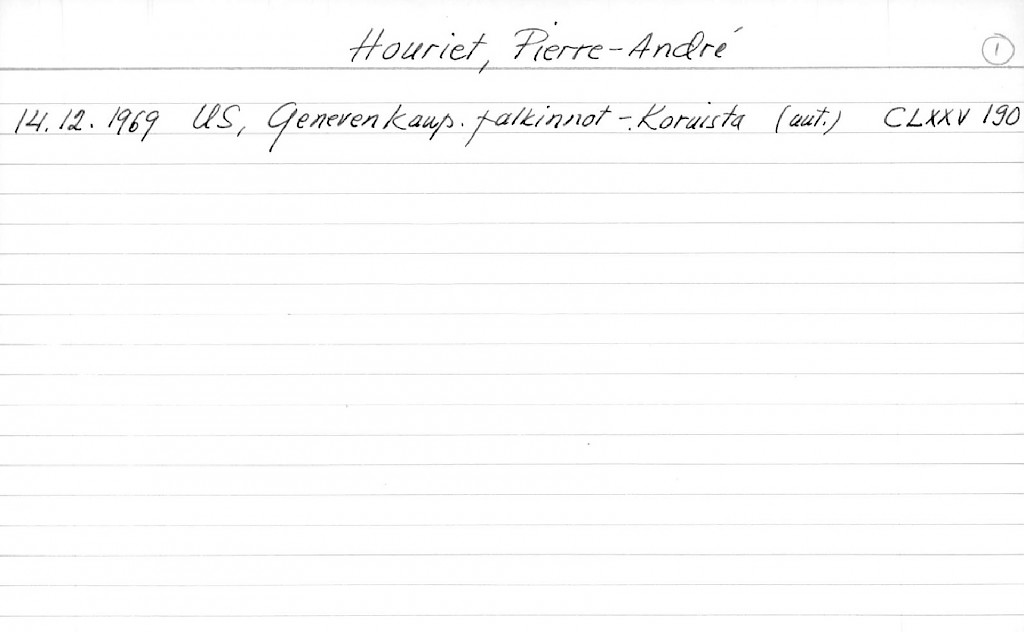 Houriet, Pierre-André 1
14.12.1969 US, Genevenkaup. palkinnot - Koruista (aut.) CLXXV 190